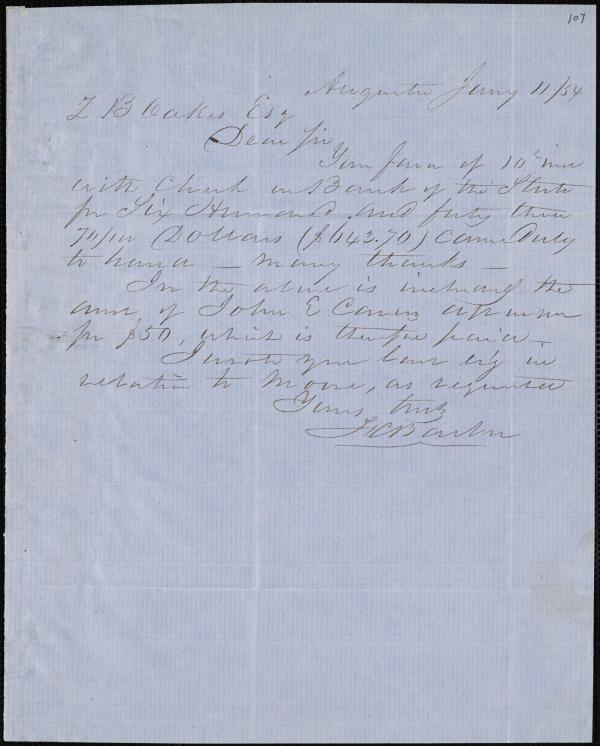 107
Augusta Jany 11/54
Z B Oakes Esq
Dear Sir
Your favor of 10th inst
with Check on Bank of the State
for Six Hundred and forty three
70/100 Dollars ($643.70) came duly
to hand — Many thanks —
In the above is included the
amt of John E
for $50, which is therefore paid.
I wrote you last evg in
relation to Moore, as requested
Yours truly
Barber